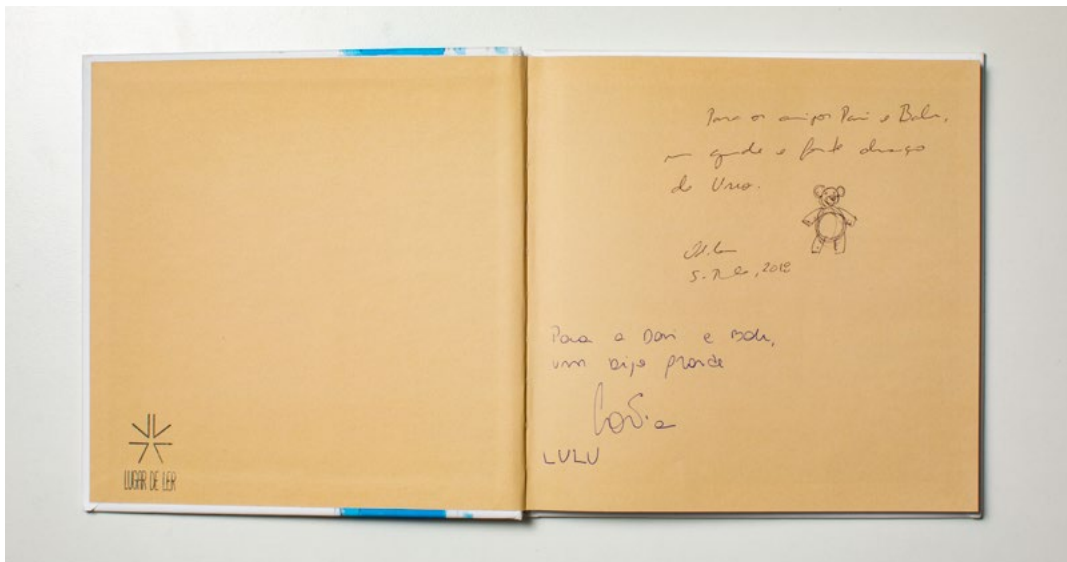 LUGAR DE LER
Para os amigos Dani e Baln,
um grande e forte abraço
do Urso.
2012
Para a Dani e
um beijo grande
LULU